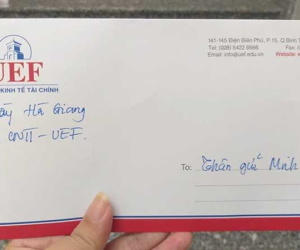 UEF
KINH TẾ TÀI CHÍNH
141-145 Điện Biên Phủ, P.15, Q.Bình
Tel: (028) 5422 6666
Fax:
Email: info@uef.edu.vn
Website:
Hà Giang
CNTT - UEF.
To: Thân gửi Minh